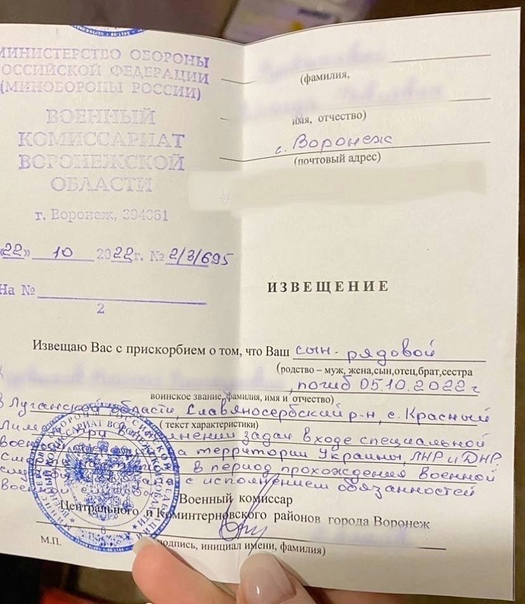 МИНИСТЕРСТВО ОБОРОНЫ
РОССИЙСКОЙ ФЕДЕРАЦИИ
(МИНОБОРОНЫ РОССИИ)
ВОЕННЫЙ
КОМИССАРИАТ
ВОРОНЕЖСКОЙ
ОБЛАСТИ
г. Воронеж, 394061
«22» 10 2022г. № 2/3/695
На №
2
(фамилия,
имя, отчество)
г. Воронеж
(почтовый адрес)
ИЗВЕЩЕНИЕ
Извещаю Вас с прискорбием о том, что Ваш сын - рядовой
(родство – муж, жена,сын,отец,брат,сестра
, погиб 05.10.2022г
воинское звание, фамилия, имя и отчество)
В Луганской области, Славяносербский р-н, с. Красный
(текст характеристики)
Лиман при выполнении задач в ходе специальной
на территории Украины ЛНР и ДНР
в период прохождения военной
с исполнением обязанностей
Военный комиссар
Центрального и Коминтерновского районов города Воронеж
М.П.
подпись, инициал имени, фамилия)